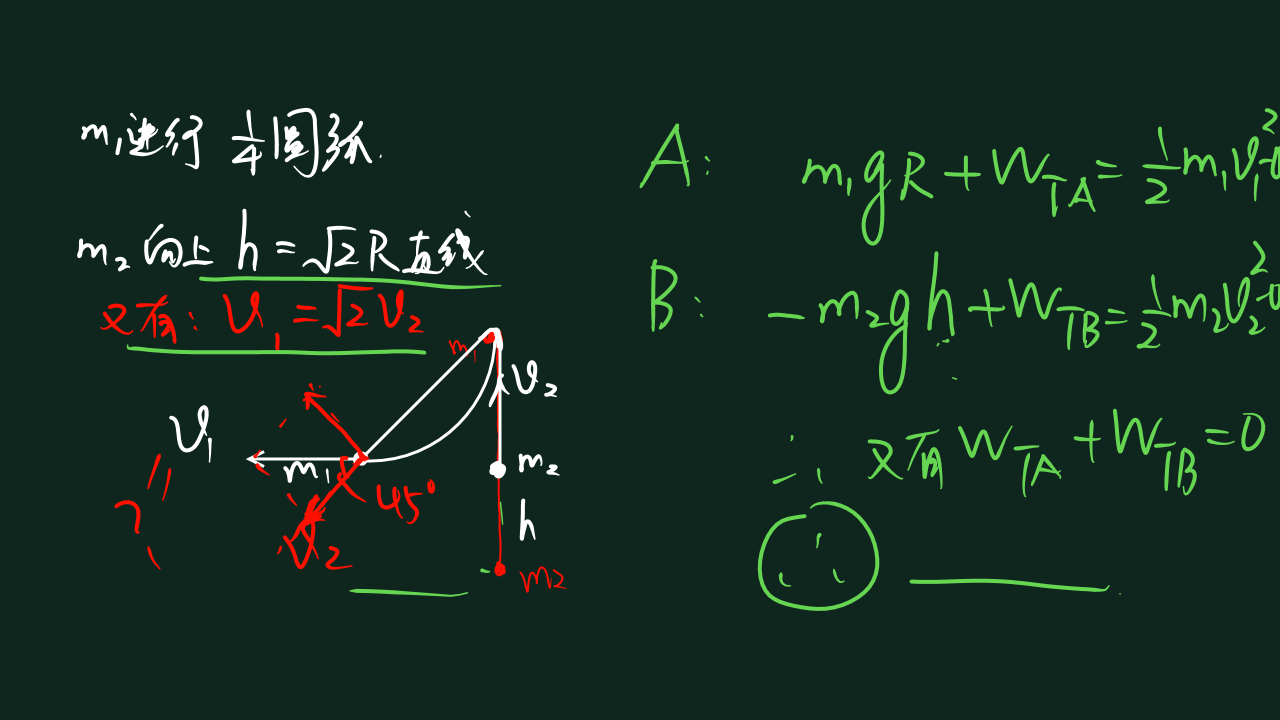 m₁进行 1/4 圆弧.
m₂ 向上 h = √2 R 直线
又有: v₁ = √2 v₂
m₁
v₂
v₁
m₁
m₂
45°
h
v₂
m₂
A: m₁gR + W_TA = 1/2 m₁v₁² - 0
B: -m₂gh + W_TB = 1/2 m₂v₂² - 0
∴ 又有 W_TA + W_TB = 0